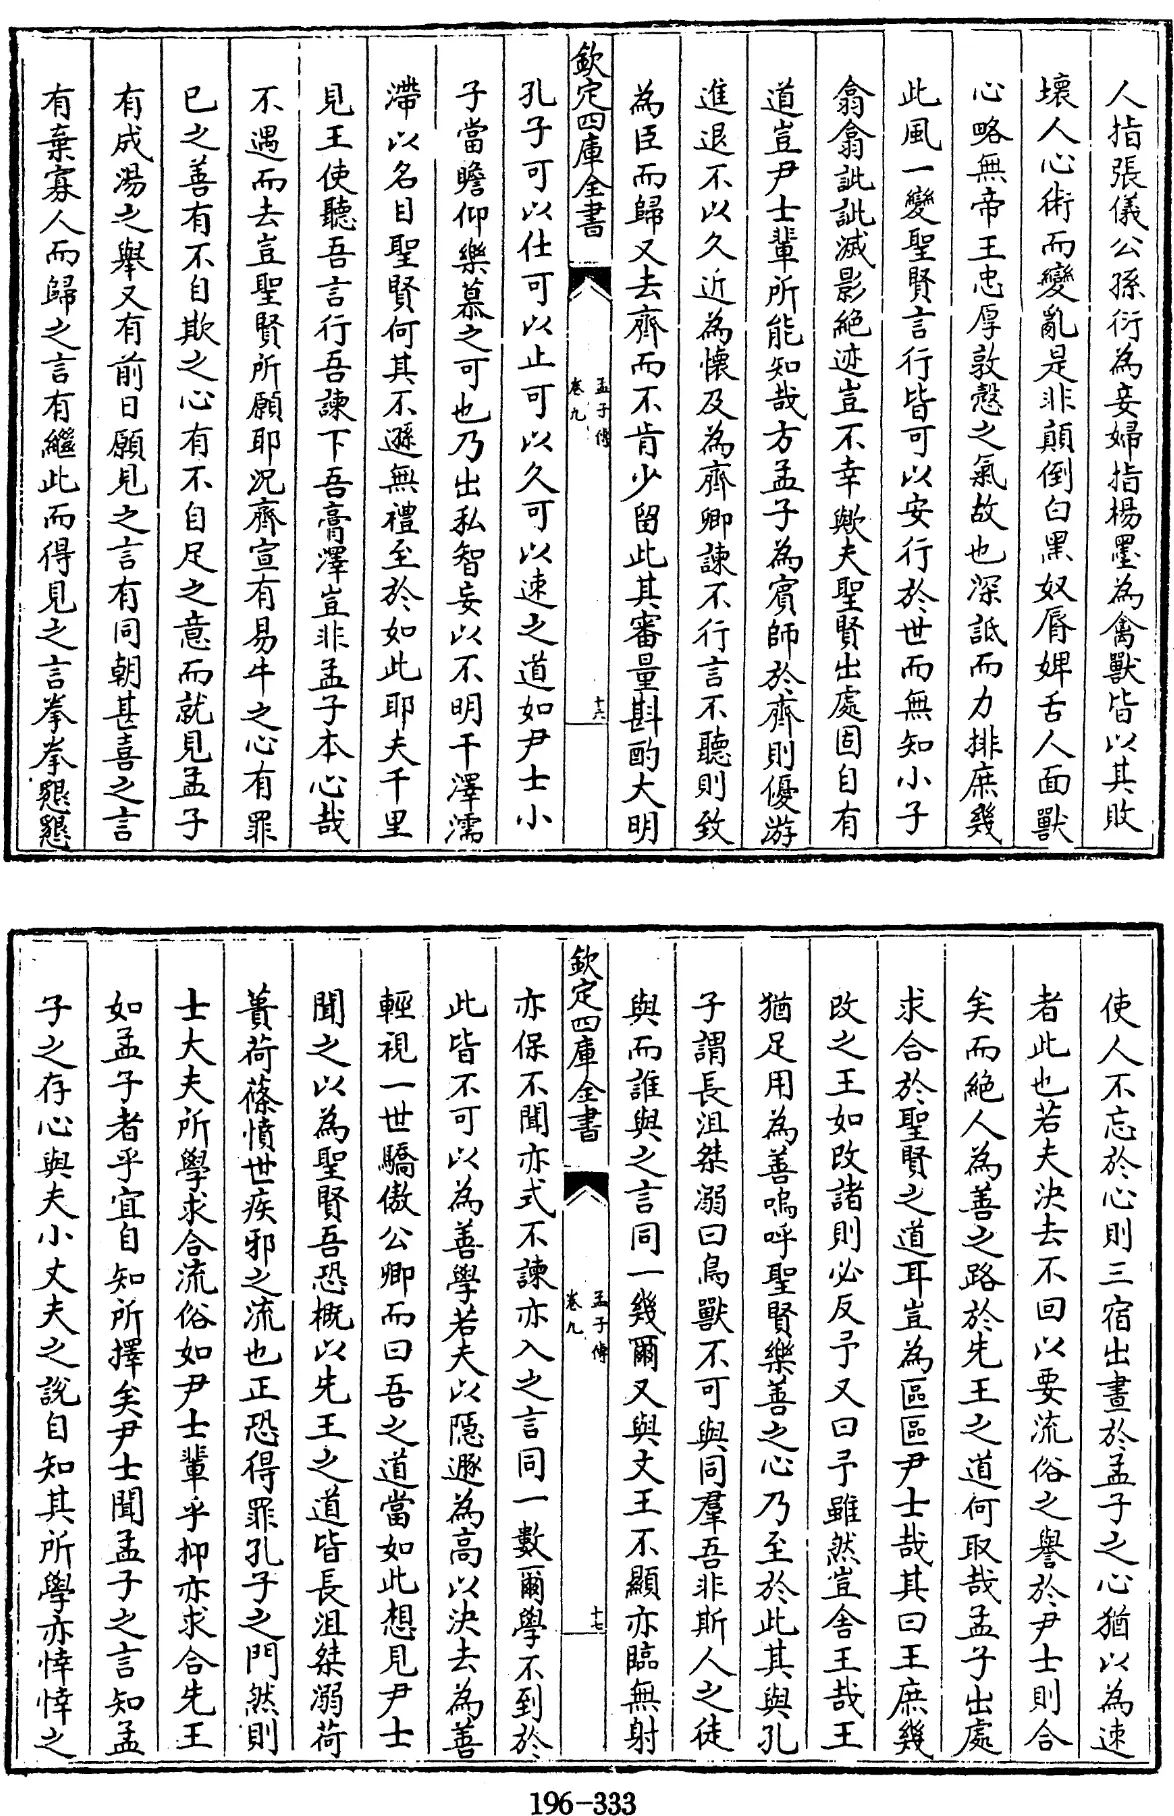 人指張儀公孫衍為妾婦指楊墨為禽獸皆以其敗
壞人心術而變亂是非顛倒白黑奴脣婢舌人面獸
心略無帝王忠厚敦愨之氣故也深詆而力排庶幾
此風一變聖賢言行皆可以安行於世而無知小子
翕翕訿訿滅影絶迹豈不幸歟夫聖賢出處固自有
道豈尹士輩所能知哉方孟子為賓師於齊則優游
進退不以久近為懷及為齊卿諫不行言不聽則致
為臣而歸又去齊而不肯少留此其審量斟酌大明
欽定四庫全書
孟子傳
卷九
十六
孔子可以仕可以止可以久可以速之道如尹士小
子當瞻仰樂慕之可也乃出私智妄以不明干澤濡
滯以名目聖賢何其不遜無禮至於如此耶夫千里
見王使聽吾言行吾諫下吾膏澤豈非孟子本心哉
不遇而去豈聖賢所願耶况齊宣有易牛之心有罪
已之善有不自欺之心有不自足之意而就見孟子
有成湯之舉又有前日願見之言有同朝甚喜之言
有棄寡人而歸之言有繼此而得見之言拳拳懇懇
使人不忘於心則三宿出晝於孟子之心猶以為速
者此也若夫決去不回以要流俗之譽於尹士則合
矣而絶人為善之路於先王之道何取哉孟子出處
求合於聖賢之道耳豈為區區尹士哉其曰王庶幾
改之王如改諸則必反予又曰予雖然豈舍王哉王
猶足用為善嗚呼聖賢樂善之心乃至於此其與孔
子謂長沮桀溺曰鳥獸不可與同羣吾非斯人之徒
與而誰與之言同一幾爾又與文王不顯亦臨無射
欽定四庫全書
孟子傳
卷九
十七
亦保不聞亦式不諫亦入之言同一數爾學不到於
此皆不可以為善學若夫以隱遯為高以決去為善
輕視一世驕傲公卿而曰吾之道當如此想見尹士
聞之以為聖賢吾恐概以先王之道皆長沮桀溺荷
蕢荷蓧憤世疾邪之流也正恐得罪孔子之門然則
士大夫所學求合流俗如尹士輩乎抑亦求合先王
如孟子者乎宜自知所擇矣尹士聞孟子之言知孟
子之存心與夫小丈夫之說自知其所學亦悻悻之
196-333